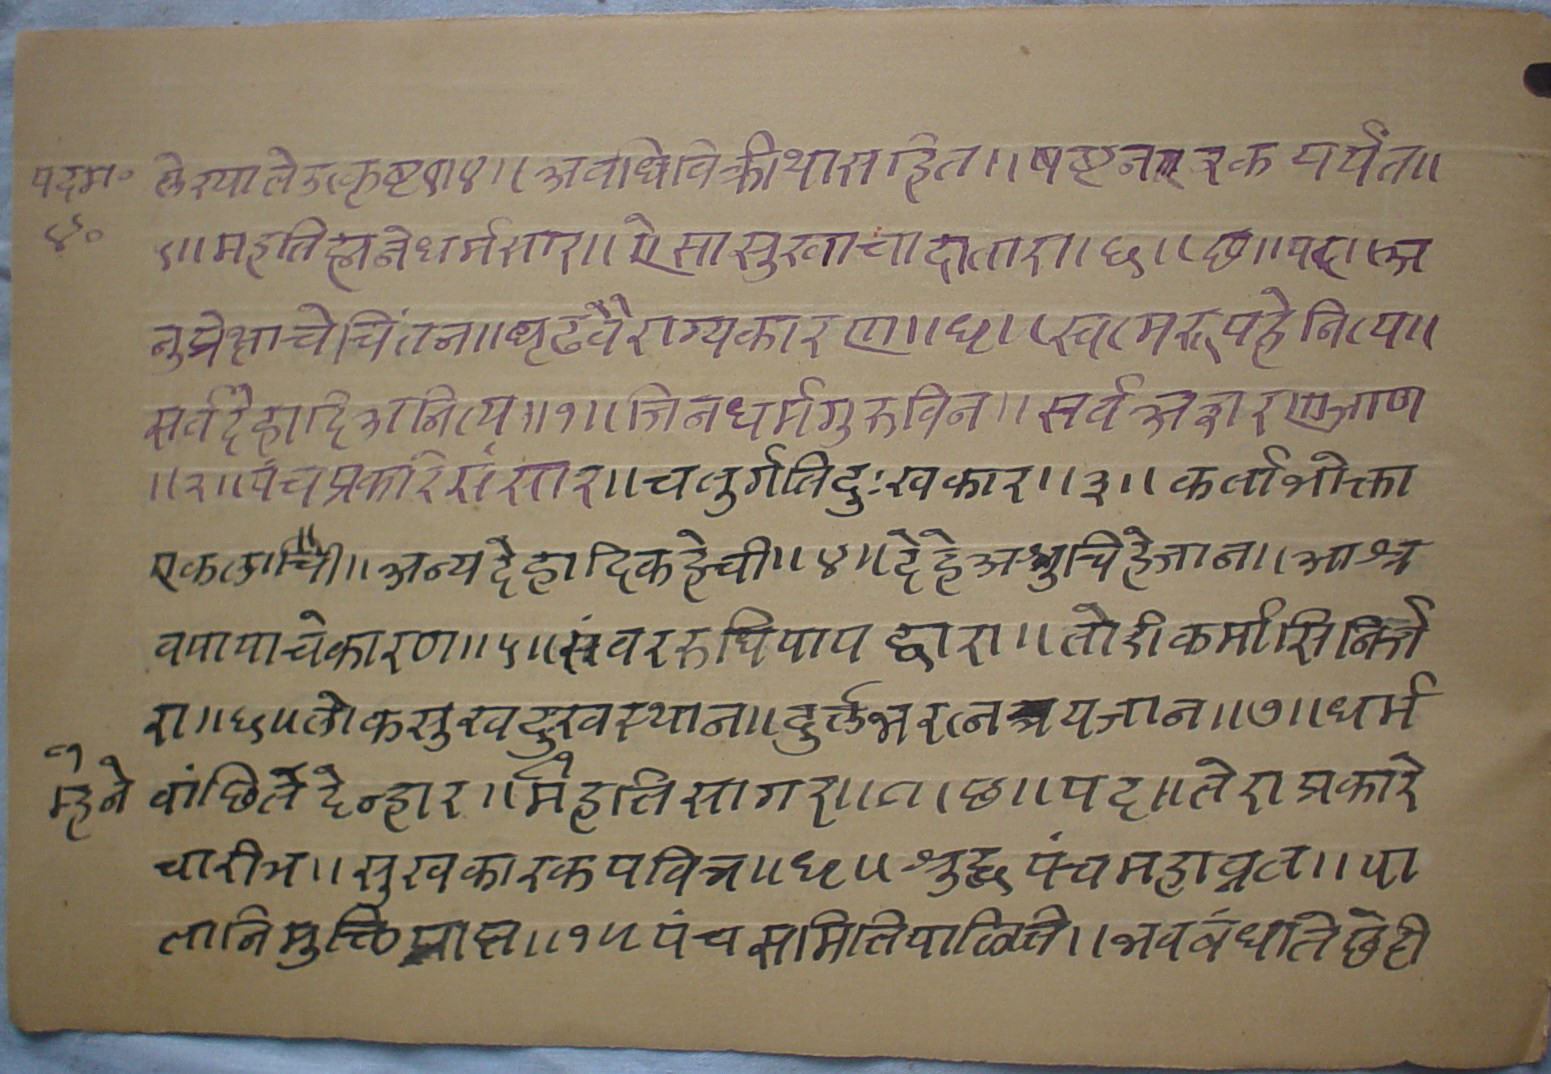 पदम॰ लेस्याते उत्कृष्ट ॥४॥ अवधि विक्रीया साहित ॥ षष्ट नरक पर्यंत ॥
४॰ ५॥ महति ह्मने धर्मसार ॥ ऐसा सुखाचा दातारा ॥६॥ छ ॥ पद ॥ अ
नुप्रेक्षाचे चिंतन ॥ धृढ वैराग्य कारण ॥धृ॥ स्वात्मरुप हे नित्य ॥
सर्व देहादि अनित्य ॥१॥ जिनधर्म गुरु विन ॥ सर्व अशरण जाण
॥२॥ पंच प्रकारि संसार ॥ चतुर्गति दुःखकार ॥३॥ कर्ता भोक्ता
एकलाची ॥ अन्य देहादिक हेची ॥४॥ देहे अश्रुचि हे जान ॥ आश्र
व पापाचे कारण ॥५॥ संवर रुधि पाप द्वारा ॥ तोरी कर्मासि निर्ज
रा ॥६॥ लोक सुख दुख स्थान ॥ दुर्लभ रत्नत्रय जान ॥७॥ धर्म
म्हने वांछिते देन्हार ॥ महति सागर ॥८॥ छ ॥ पद ॥ तेरा प्रकारे
चारीत्र ॥ सुखकारक पवित्र ॥धृ॥ श्रुद्ध पंच महाव्रत ॥ पा
ता नि मुक्ति प्राप्त ॥१॥ पंच समिति पाळिते ॥ भवबंधाते छेदी